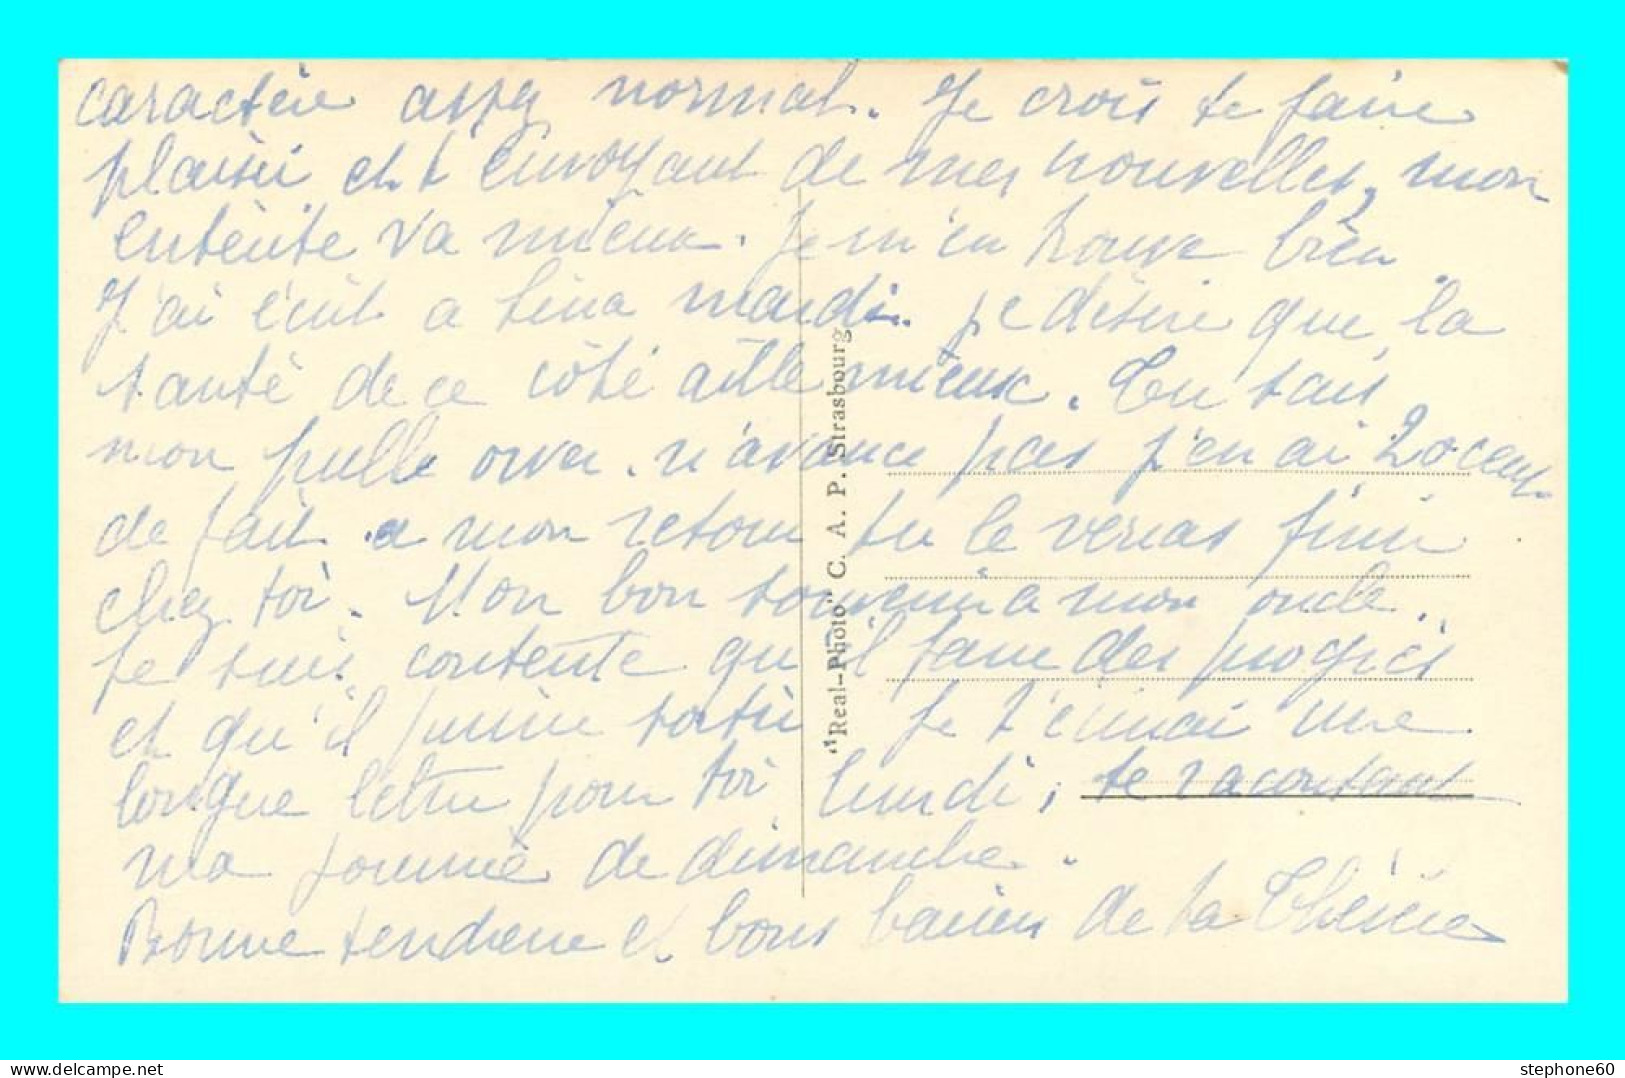 caractère assez normal. Je crois te faire
plaisir et t envoyant de mes nouvelles, mon
entérite va mieux. Je m'en trouve bien
J'ai écrit a Lina mardi. je désire que la
santé de ce côté aille mieux. Tu sais
mon pull over n'avance pas j'en ai 20 cent.
de fait a mon retour tu le verras finir
chez toi. Mon bon souvenir a mon oncle.
Je suis contente qu'il fasse des progrès
et qu'il puisse sortir Je t'écrirai une
longue lettre pour toi lundi, te racontant
ma journée de dimanche.
Bonne tendresse et bons baisers de ta Thérèse
"Real-Photo" C. A. P. Strasbourg
stephone60